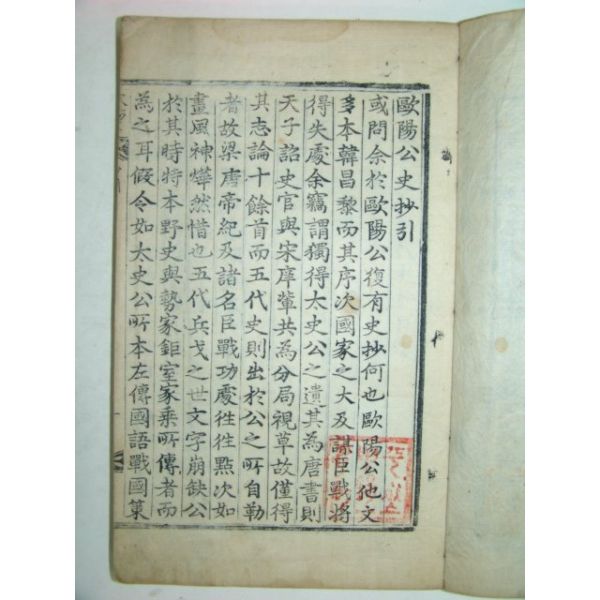 歐陽公史抄引
或問余於歐陽公復有史抄何也歐陽公他文
多本韓昌黎而其序次國家之大及謀臣戰將
得失處余竊謂獨得太史公之遺其爲唐書則
天子詔史官與宋庠輩共為分局視草故僅得
其志論十餘首而五代史則出於公之所自勒
者故梁唐帝紀及諸名臣戰功處徃徃㸃次如
畫風神燁然惜也五代兵戈之世文字崩缺公
於其時特本野史與勢家鉅室家乗所傳者而
為之耳假令如太史公所本左傳國語戰國策